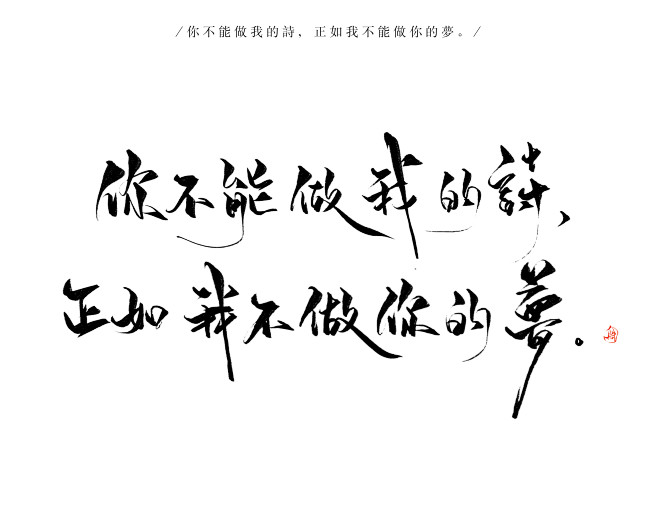 /你不能做我的詩，正如我不能做你的夢。/
你不能做我的詩、
正如我不做你的夢。